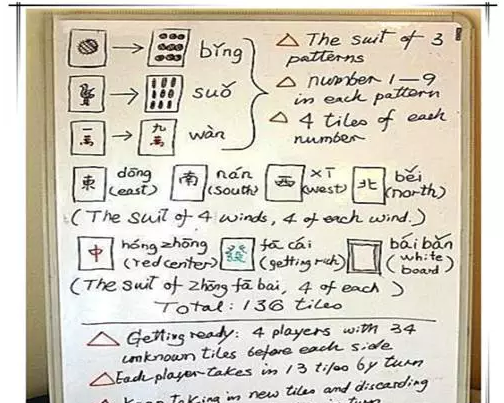 bǐng
suǒ
一萬 九萬 wàn
△ The suit of 3
patterns
△ number 1—9
in each pattern
△ 4 tiles of each
number
東 dōng 南 nán 西 xī 北 běi
(east) (south) (west) (north)
(The suit of 4 winds, 4 of each wind.)
中 hóng zhōng 發 fā cái bái bǎn
(red center) (getting rich) (white
board)
(The suit of zhōng fā bai, 4 of each)
Total: 136 tiles
△ Getting ready: 4 players with 34
unknown tiles before each side
△ Each player takes in 13 tiles by turn
△ Keep taking in new tiles and discarding
in turn